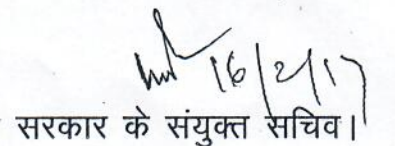 16/2/17
सरकार के संयुक्त सचिव।